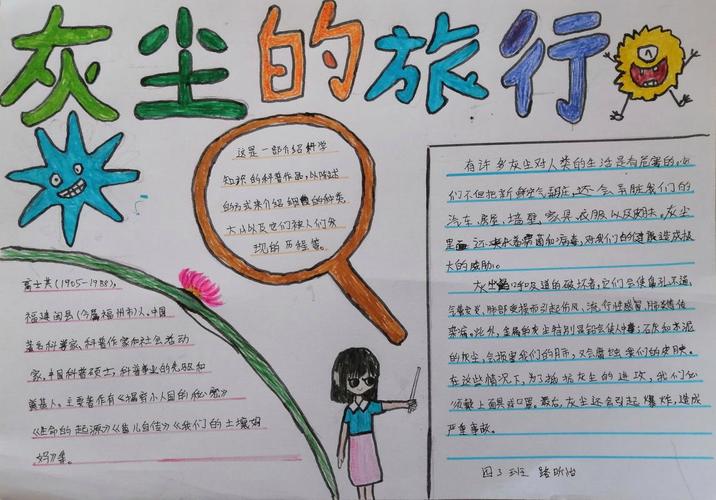 灰尘的旅行
这是一部介绍科学
知识的科普作品,以陈述
的方式来介绍细菌的种类、
大小以及它们被人们发
现的历程等。
高士其(1905-1988),
福建闽县(今属福州市)人,中国
著名科学家、科普作家和社会活动
家,中国科普硕士,科普事业的先驱和
奠基人。主要著作有《揭穿小人国的秘密》
《生命的起源》《菌儿自传》《我们的土壤妈
妈》等。
有许多灰尘对人类的生活是有危害的,
们不但把新鲜空气弄脏,还会弄脏我们的
汽车、房屋、墙壁、家具、衣服以及皮肤。灰尘
里面还夹杂着细菌和病毒,对我们的健康造成极
大的威胁。
灰尘是呼吸道的破坏者,它们会使鼻孔不通、
气管发炎、肺部受损而引起伤风、流行性感冒、肺炎等传
染病。此外,金属的灰尘特别是铅会使人中毒;石灰和水泥
的灰尘,会损害我们的肺,又会腐蚀我们的皮肤。
在这些情况下,为了抵抗灰尘的进攻,我们必
须戴上面具或口罩。最后,灰尘还会引起爆炸,造成
严重事故。
四3班